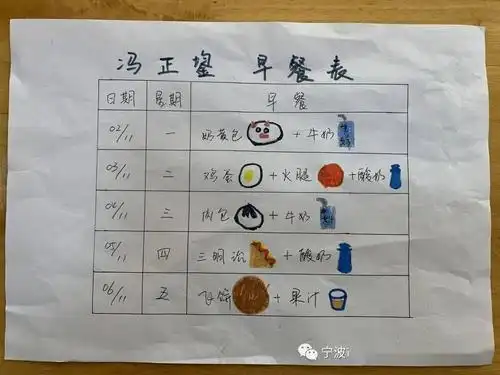 冯正鋆 早餐表
日期 星期 早餐
02/11 一 奶黄包 + 牛奶
03/11 二 鸡蛋 + 火腿 + 酸奶
04/11 三 肉包 + 牛奶
05/11 四 三明治 + 酸奶
06/11 五 飞饼 + 果汁
宁波i